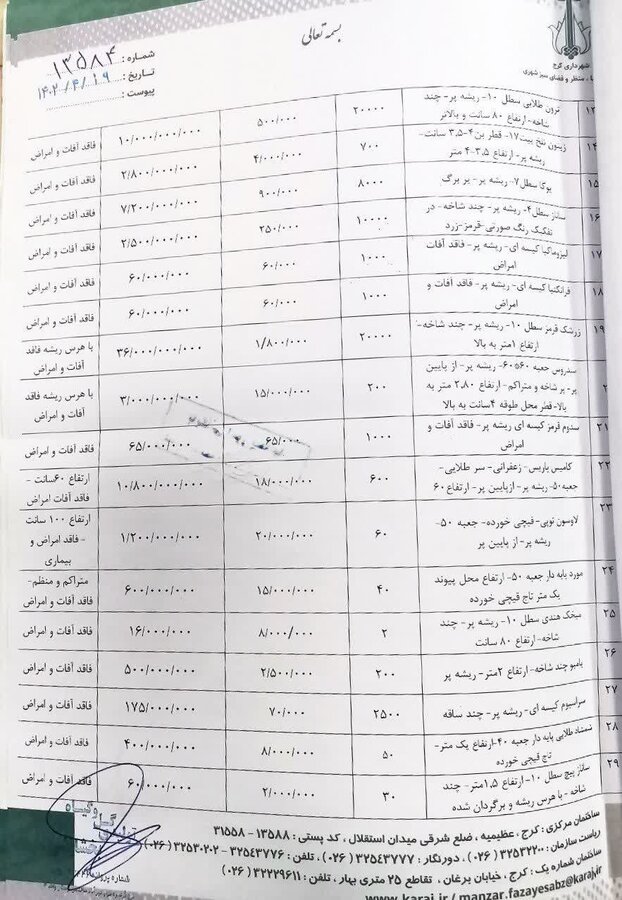 بسمه تعالی
شهرداری کرج
منظر و فضای سبز شهری
شماره : ۱۳۵۸۴
تاریخ : ۱۴۰۲/۴/۱۹
پیوست :
۱۳ ترون طلایی سطل ۱۰- ریشه پر- چند شاخه- ارتفاع ۸۰ سانت و بالاتر ۲۰۰۰۰ ۵۰۰/۰۰۰ ۱۰/۰۰۰/۰۰۰/۰۰۰ فاقد آفات و امراض
۱۴ زیتون تلخ بیت۱۷- قطر بن ۴-۳.۵ سانت- ریشه پر- ارتفاع ۳.۵-۴ متر ۷۰۰ ۴/۰۰۰/۰۰۰ ۲/۸۰۰/۰۰۰/۰۰۰ فاقد آفات و امراض
۱۵ یوکا سطل۷- ریشه پر- پر برگ ۸۰۰۰ ۹۰۰/۰۰۰ ۷/۲۰۰/۰۰۰/۰۰۰ فاقد آفات و امراض
۱۶ ساناز سطل ۴- ریشه پر- چند شاخه- در تفکیک رنگ صورتی-قرمز-زرد ۱۰۰۰۰ ۲۵۰/۰۰۰ ۲/۵۰۰/۰۰۰/۰۰۰ فاقد آفات و امراض
۱۷ لیزوماکیا کیسه ای- ریشه پر- فاقد آفات امراض ۱۰۰۰ ۶۰/۰۰۰ ۶۰/۰۰۰/۰۰۰ فاقد آفات و امراض
۱۸ فرانکنیا کیسه ای- ریشه پر- فاقد آفات و امراض ۱۰۰۰ ۶۰/۰۰۰ ۶۰/۰۰۰/۰۰۰ فاقد آفات و امراض
۱۹ زرشک قرمز سطل ۱۰- ریشه پر- چند شاخه- ارتفاع ۱متر به بالا ۲۰۰۰۰ ۱/۸۰۰/۰۰۰ ۳۶/۰۰۰/۰۰۰/۰۰۰ با هرس ریشه فاقد آفات و امراض
۲ سدروس جعبه ۶۰*۶۰- ریشه پر- از پایین پر- پر شاخه و متراکم- ارتفاع ۲.۸۰ متر به بالا- قطر محل طوقه ۴سانت به بالا ۲۰۰ ۱۵/۰۰۰/۰۰۰ ۳/۰۰۰/۰۰۰/۰۰۰ با هرس ریشه فاقد آفات و امراض
۲۱ سدوم قرمز کیسه ای ریشه پر- فاقد آفات و امراض ۱۰۰۰ ۶۵/۰۰۰ ۶۵/۰۰۰/۰۰۰ فاقد آفات و امراض
۲۲ کامیس پاریس- زعفرانی- سر طلایی- جعبه۵۰- ریشه پر- ازپایین پر- ارتفاع ۶۰ ۶۰۰ ۱۸/۰۰۰/۰۰۰ ۱۰/۸۰۰/۰۰۰/۰۰۰ ارتفاع ۶۰سانت - فاقد آفات امراض
۲۳ لاوسون توپی- قیچی خورده- جعبه ۵۰- ریشه پر- از پایین پر ۶۰ ۲۰/۰۰۰/۰۰۰ ۱/۲۰۰/۰۰۰/۰۰۰ ارتفاع ۱۰۰ سانت - فاقد امراض و بیماری
۲۴ مورد پایه دار جعبه ۵۰- ارتفاع محل پیوند یک متر تاج قیچی خورده ۴۰ ۱۵/۰۰۰/۰۰۰ ۶۰۰/۰۰۰/۰۰۰ متراکم و منظم- فاقد آفات و امراض
۲۵ میخک هندی سطل ۱۰- ریشه پر- چند شاخه- ارتفاع ۸۰ سانت ۲ ۸/۰۰۰/۰۰۰ ۱۶/۰۰۰/۰۰۰ فاقد آفات و امراض
۲۶ بامبو چند شاخه- ارتفاع ۲متر- ریشه پر ۲۰۰ ۲/۵۰۰/۰۰۰ ۵۰۰/۰۰۰/۰۰۰ فاقد آفات و امراض
۲۷ سراسیوم کیسه ای- ریشه پر- چند ساقه ۲۵۰۰ ۷۰/۰۰۰ ۱۷۵/۰۰۰/۰۰۰ فاقد آفات و امراض
۲۸ شمشاد طلایی پایه دار جعبه ۴۰-ارتفاع یک متر- تاج قیچی خورده ۵۰ ۸/۰۰۰/۰۰۰ ۴۰۰/۰۰۰/۰۰۰ فاقد آفات و امراض
۲۹ ساناز پیچ سطل ۱۰- ارتفاع ۱.۵متر- چند شاخه- با هرس ریشه و برگردان شده ۳۰ ۲/۰۰۰/۰۰۰ ۶۰/۰۰۰/۰۰۰ فاقد آفات و امراض
ساختمان مرکزی : کرج ، عظیمیه ، ضلع شرقی میدان استقلال ، کد پستی : ۱۳۵۸۸ - ۳۱۵۵۸
ریاست سازمان : ۳۲۵۳۲۲۰۰ (۰۲۶) ، دورنگار : ۳۲۵۴۳۷۷۷ (۰۲۶) ، تلفن : ۳۲۵۴۳۷۷۶ - ۳۲۵۳۰۲۰۲ (۰۲۶)
ساختمان شماره یک : کرج ، خیابان برغان ، تقاطع ۲۵ متری بهار ، تلفن : ۳۲۲۲۹۶۱۱ (۰۲۶)
www.karaj.ir / manzar.fazayesabz@karaj.ir
گل و گیاه
شماره پروانه